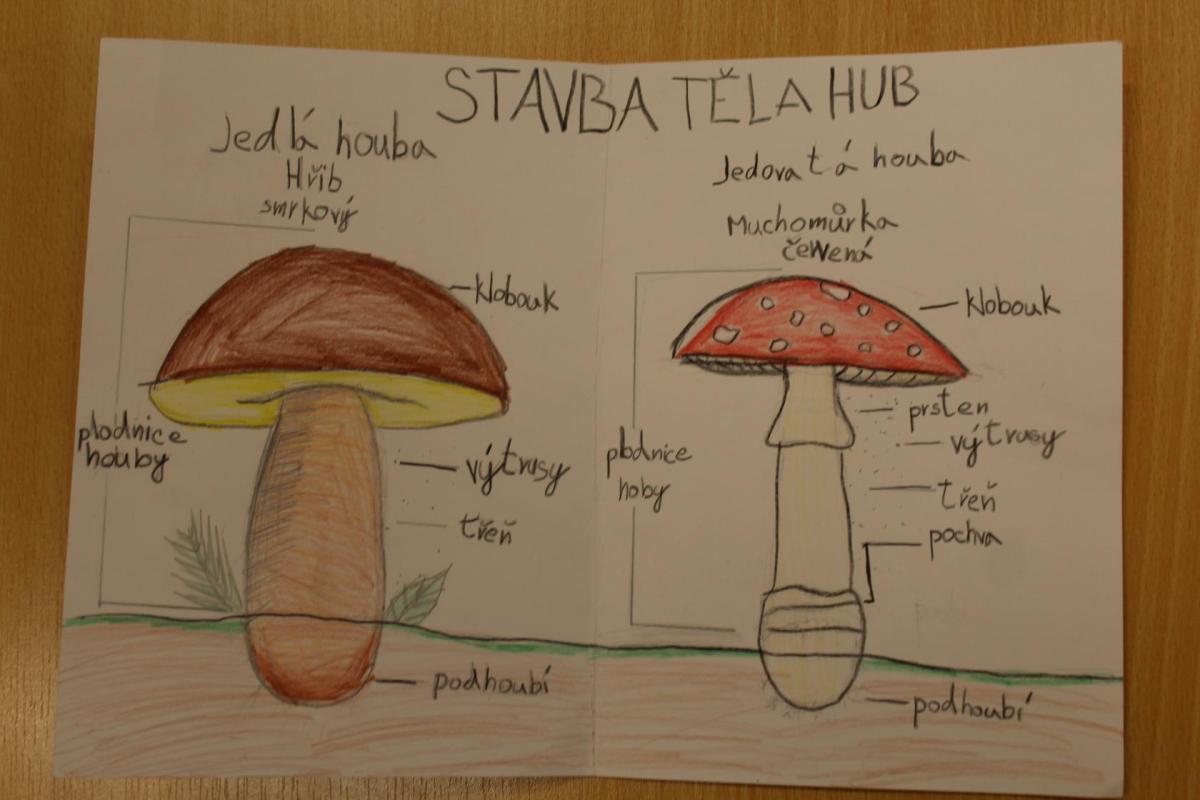 STAVBA TĚLA HUB
Jedlá houba
Hřib
smrkový
klobouk
plodnice
houby
výtrusy
třeň
podhoubí
Jedovatá houba
Muchomůrka
červená
klobouk
prsten
výtrusy
plodnice
hoby
třeň
pochva
podhoubí